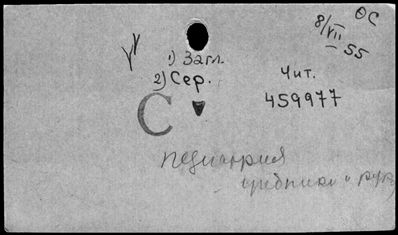 ОС
8/VII
55
1) Загл.
2) Сер.
Чит.
459977
С
педиатрия
учебники и рук